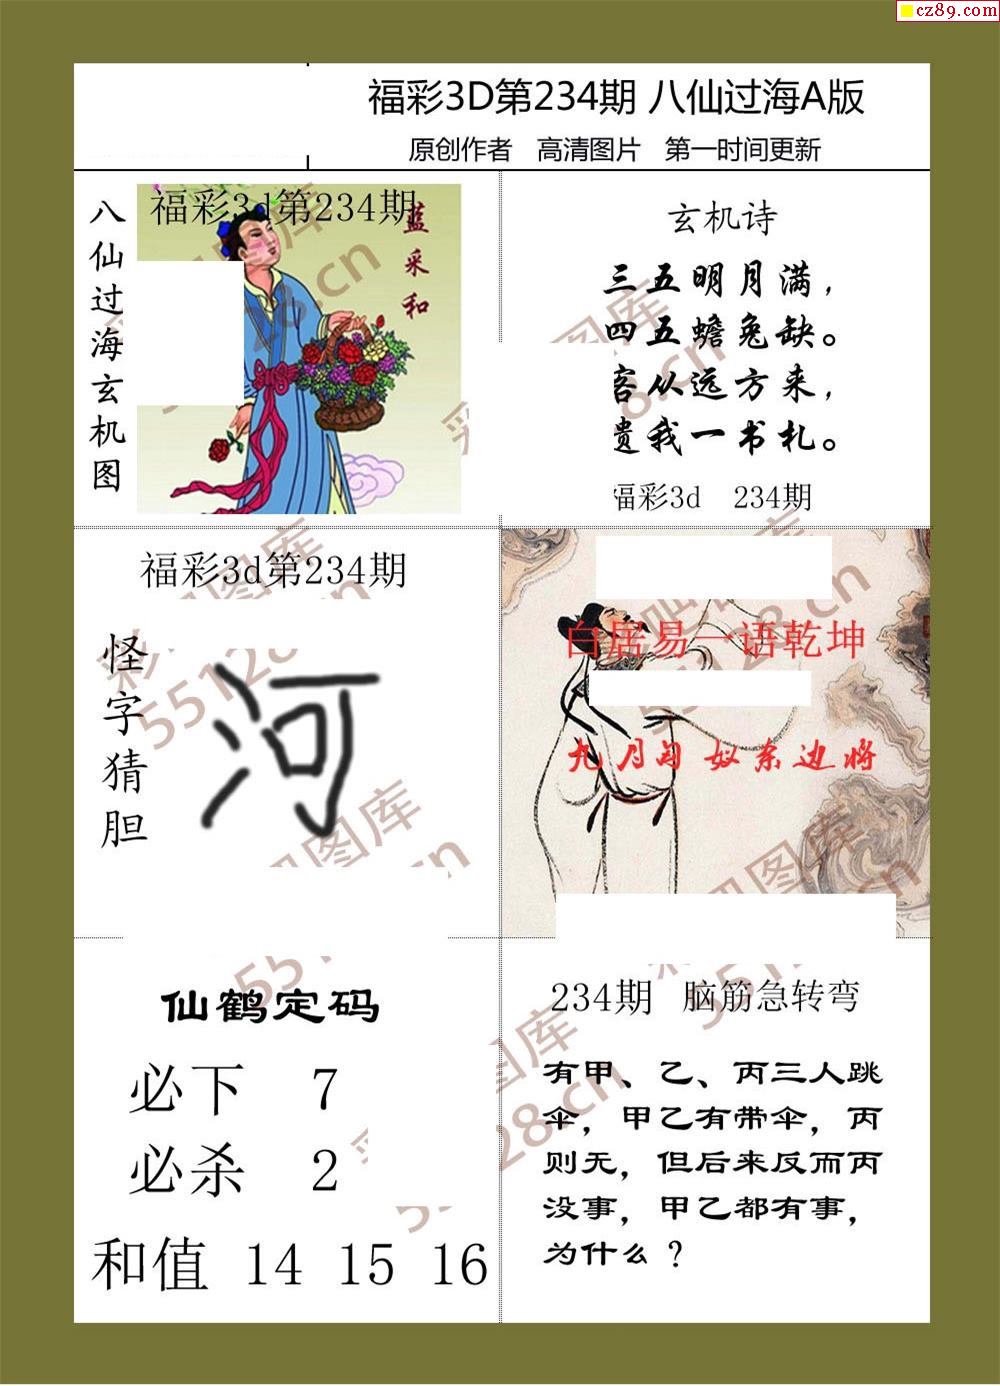 cz89.com
福彩3D第234期 八仙过海A版
原创作者 高清图片 第一时间更新
八仙过海玄机图
福彩3d第234期
蓝采和
玄机诗
三五明月满，
四五蟾兔缺。
客从远方来，
遗我一书札。
福彩3d 234期
福彩3d第234期
怪字猜胆
河
白居易一语乾坤
九月匈奴杀边将
仙鹤定码
必下 7
必杀 2
和值 14 15 16
234期 脑筋急转弯
有甲、乙、丙三人跳
伞，甲乙有带伞，丙
则无，但后来反而丙
没事，甲乙都有事，
为什么？